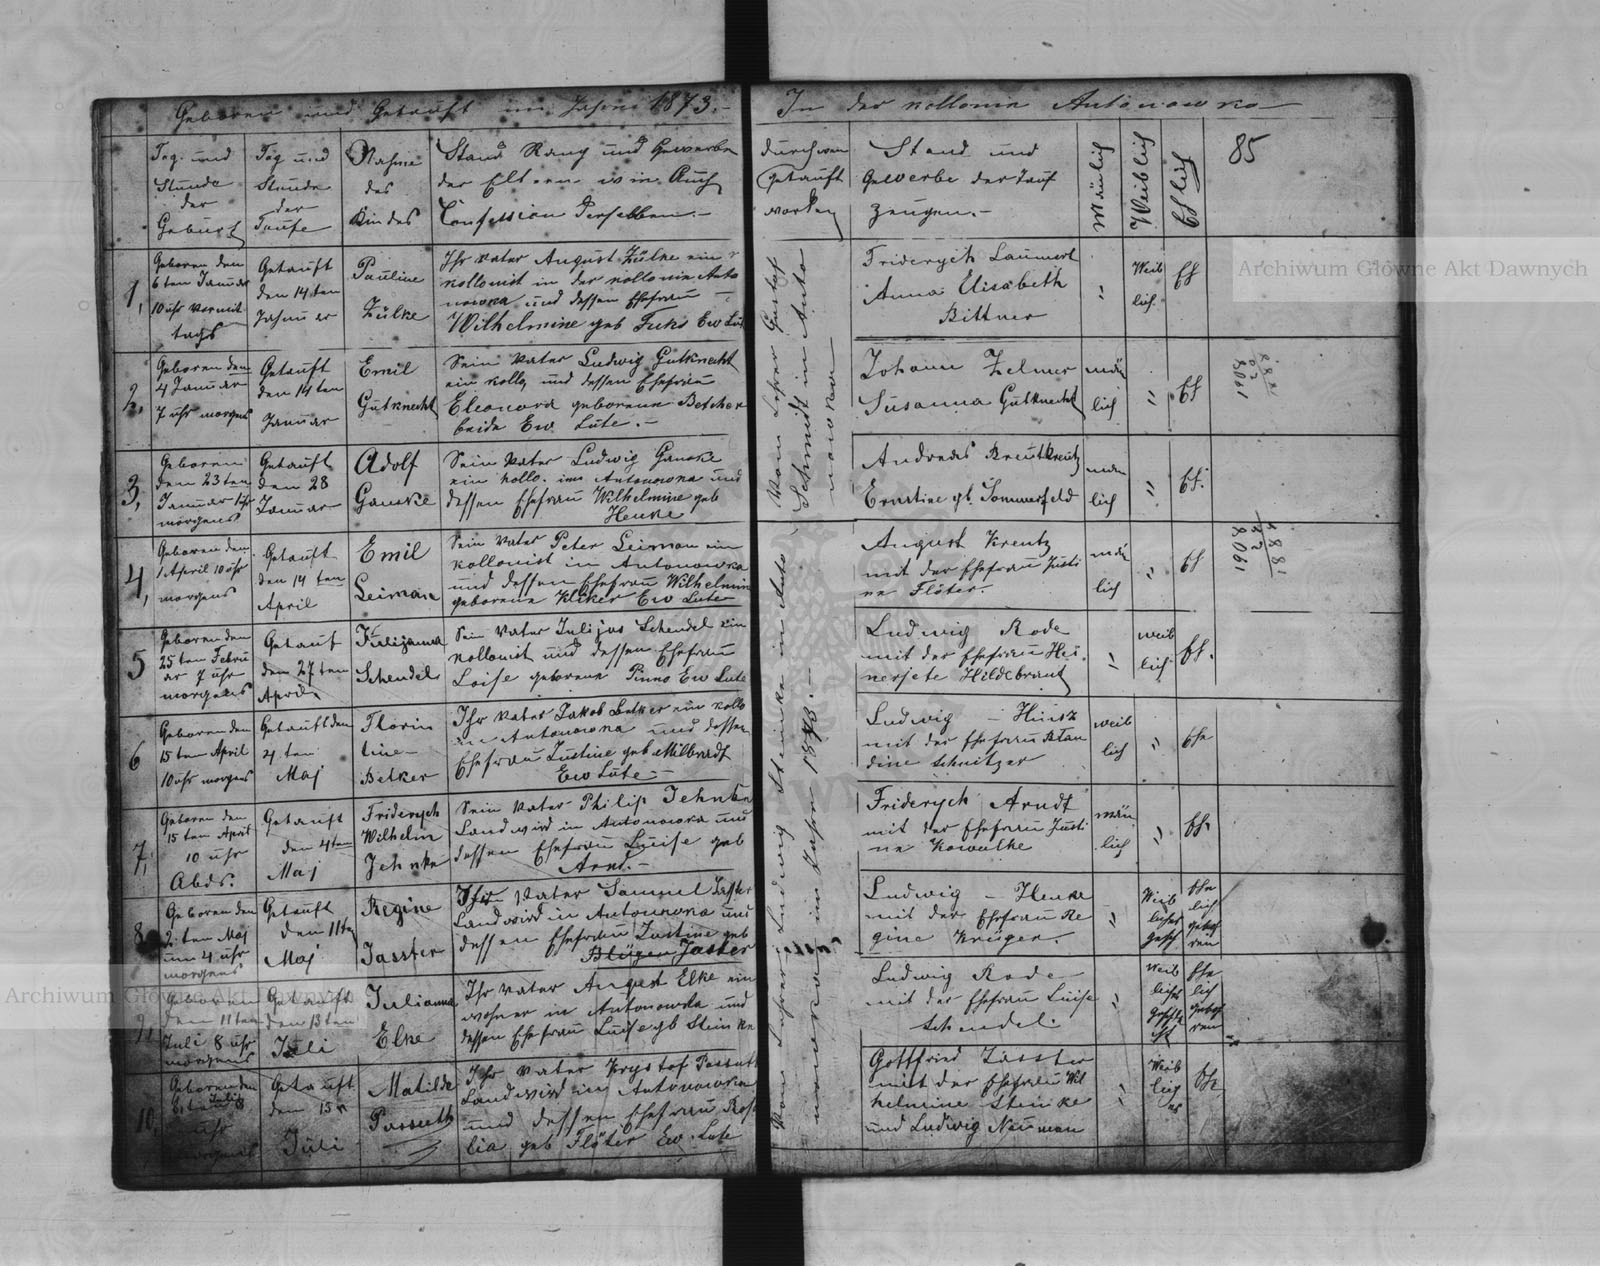 Geboren und Getauft im Jahre 1873.-
In der kollonie Antonowka
85
Tag und Stunde der Geburt
Tag und Stunde der Taufe
Nahme des Kindes
Stand Rang und Gewerbe
der Eltern wie Auch
Confession Derselben.-
durch wem Getauft worden
Stand und
Gewerbe der Tauf
zeugen.-
Mänlich
Weiblich
Ehlich
1,
Geboren den
6 ten Januar
10 uhr Vormit
tags
Getauft
den 14 ten
Januar
Pauline
Zülke
Ihr Vater August Zülke ein
kollonist in der kollonie Anto
nowka und dessen Ehefrau
Wilhelmine geb Fuks Ew Lut
Friderych
Anna Elisabeth
Bittner
"
Weib
lich
Eh
2,
Geboren den
4 Januar
7 uhr morgens
Getauft
den 14 ten
Januar
Emil
Gutknecht
Sein Vater Ludwig Gutknecht
ein kollo, und dessen Ehefrau
Eleonora geborene Betcher
beide Ew Lute.-
Johann Zelmer
Susanna Gutknecht
män
lich
"
Eh
3,
Geboren
den 23 ten
Januar 1 uhr
morgens
Getauft
den 28
Januar
Adolf
Ganske
Sein Vater Ludwig Ganske
ein kollo. in Antonowka und
dessen Ehefrau Wilhelmine geb
Henke
Andreas
Ernstine gb. Sommerfeld
män
lich
"
Eh.
Vom Lehrer Gustaf
Schmidt in Anto
nowka
4,
Geboren den
1 April 10 uhr
morgens
Getauft
den 14 ten
April
Emil
Leiman
Sein Vater Peter Leiman ein
kollonist in Antonowka
und dessen Ehefrau Wilhelmin
geborene Kliker Ew Lute
August Kreutz
mit der Ehefrau Justi
ne Flöter.
män
lich
"
Eh
5
Geboren den
25 ten Febru
ar 7 uhr
morgens
Getauf
den 27 ten
April
Julijanna
Schendel
Sein Vater Julijus Schendel ein
kollonist und dessen Ehefrau
Loise geborene Pinno Ew Lute
Ludwig Rode
mit der Ehefrau Hen
nerjete Hildebrant
"
weib
lich
Eh.
6
Geboren den
15 ten April
10 uhr morgens
Getauft den
4 ten
Maj
Florin
tine
Betker
Ihr Vater Jakob Betker ein kollo
in Antonowka und dessen
Ehefrau Justine geb Milbradt
Ew Lute-
Ludwig - Hinz
mit der Ehefrau
dine Schnitzer
weib
lich
"
Ehe
7,
Geboren den
15 ten April
10 uhr
Abds.
Getauft
den 4 ten
Maj
Friderych
Wilhelm
Jehnke
Sein Vater Philip Jehnke
Landwird in Antonowka und
dessen Ehefrau Luise geb
Arnd.-
Friderych Arndt
mit der Ehefrau Justi
ne Kowalke
män
lich
"
Eh.
8
Geboren den
2. ten Maj
um 4 uhr
morgens
Getauft
den 11 ten
Maj
Regine
Jasster
Ihr Vater Samuel Jasster
Landwird in Antonowka und
dessen Ehefrau Justine geb
Jaster
Ludwig - Henke
mit der Ehefrau Re
gine Krüger.
"
Weib
liches
gesch
Ehe
lich
gebo
ren
9,
Geboren
den 11 ten
Juli 8 uhr
morgens
Getauft
den 13 ten
Juli
Julianna
Elke
Ihr Vater August Elke ein
wohner in Antonowka und
dessen Ehefrau Luise gb Steinke
Ludwig Rode-
mit der Ehefrau Luise
Schendel.
"
Weib
liches
Ehe
lich
gebo
ren
10,
Geboren den
uhr
morgens
Getauft
den 15
Juli
Matilde
Ihr Vater Krystof
Landwird in Antonowka
und dessen Ehefrau Rosa
lia geb Flöter Ew. Lute
Gottfried Jasster
mit der Ehefrau Wil
helmine Steinke
und Ludwig Neuman
"
Weib
lich
Ehe
Vom Lehrer Ludwig Steinke in Anto
nowka im Jahre 1873.-
1881
1903
1881
1903
Archiwum Główne Akt Dawnych
Archiwum Główne Akt Dawnych